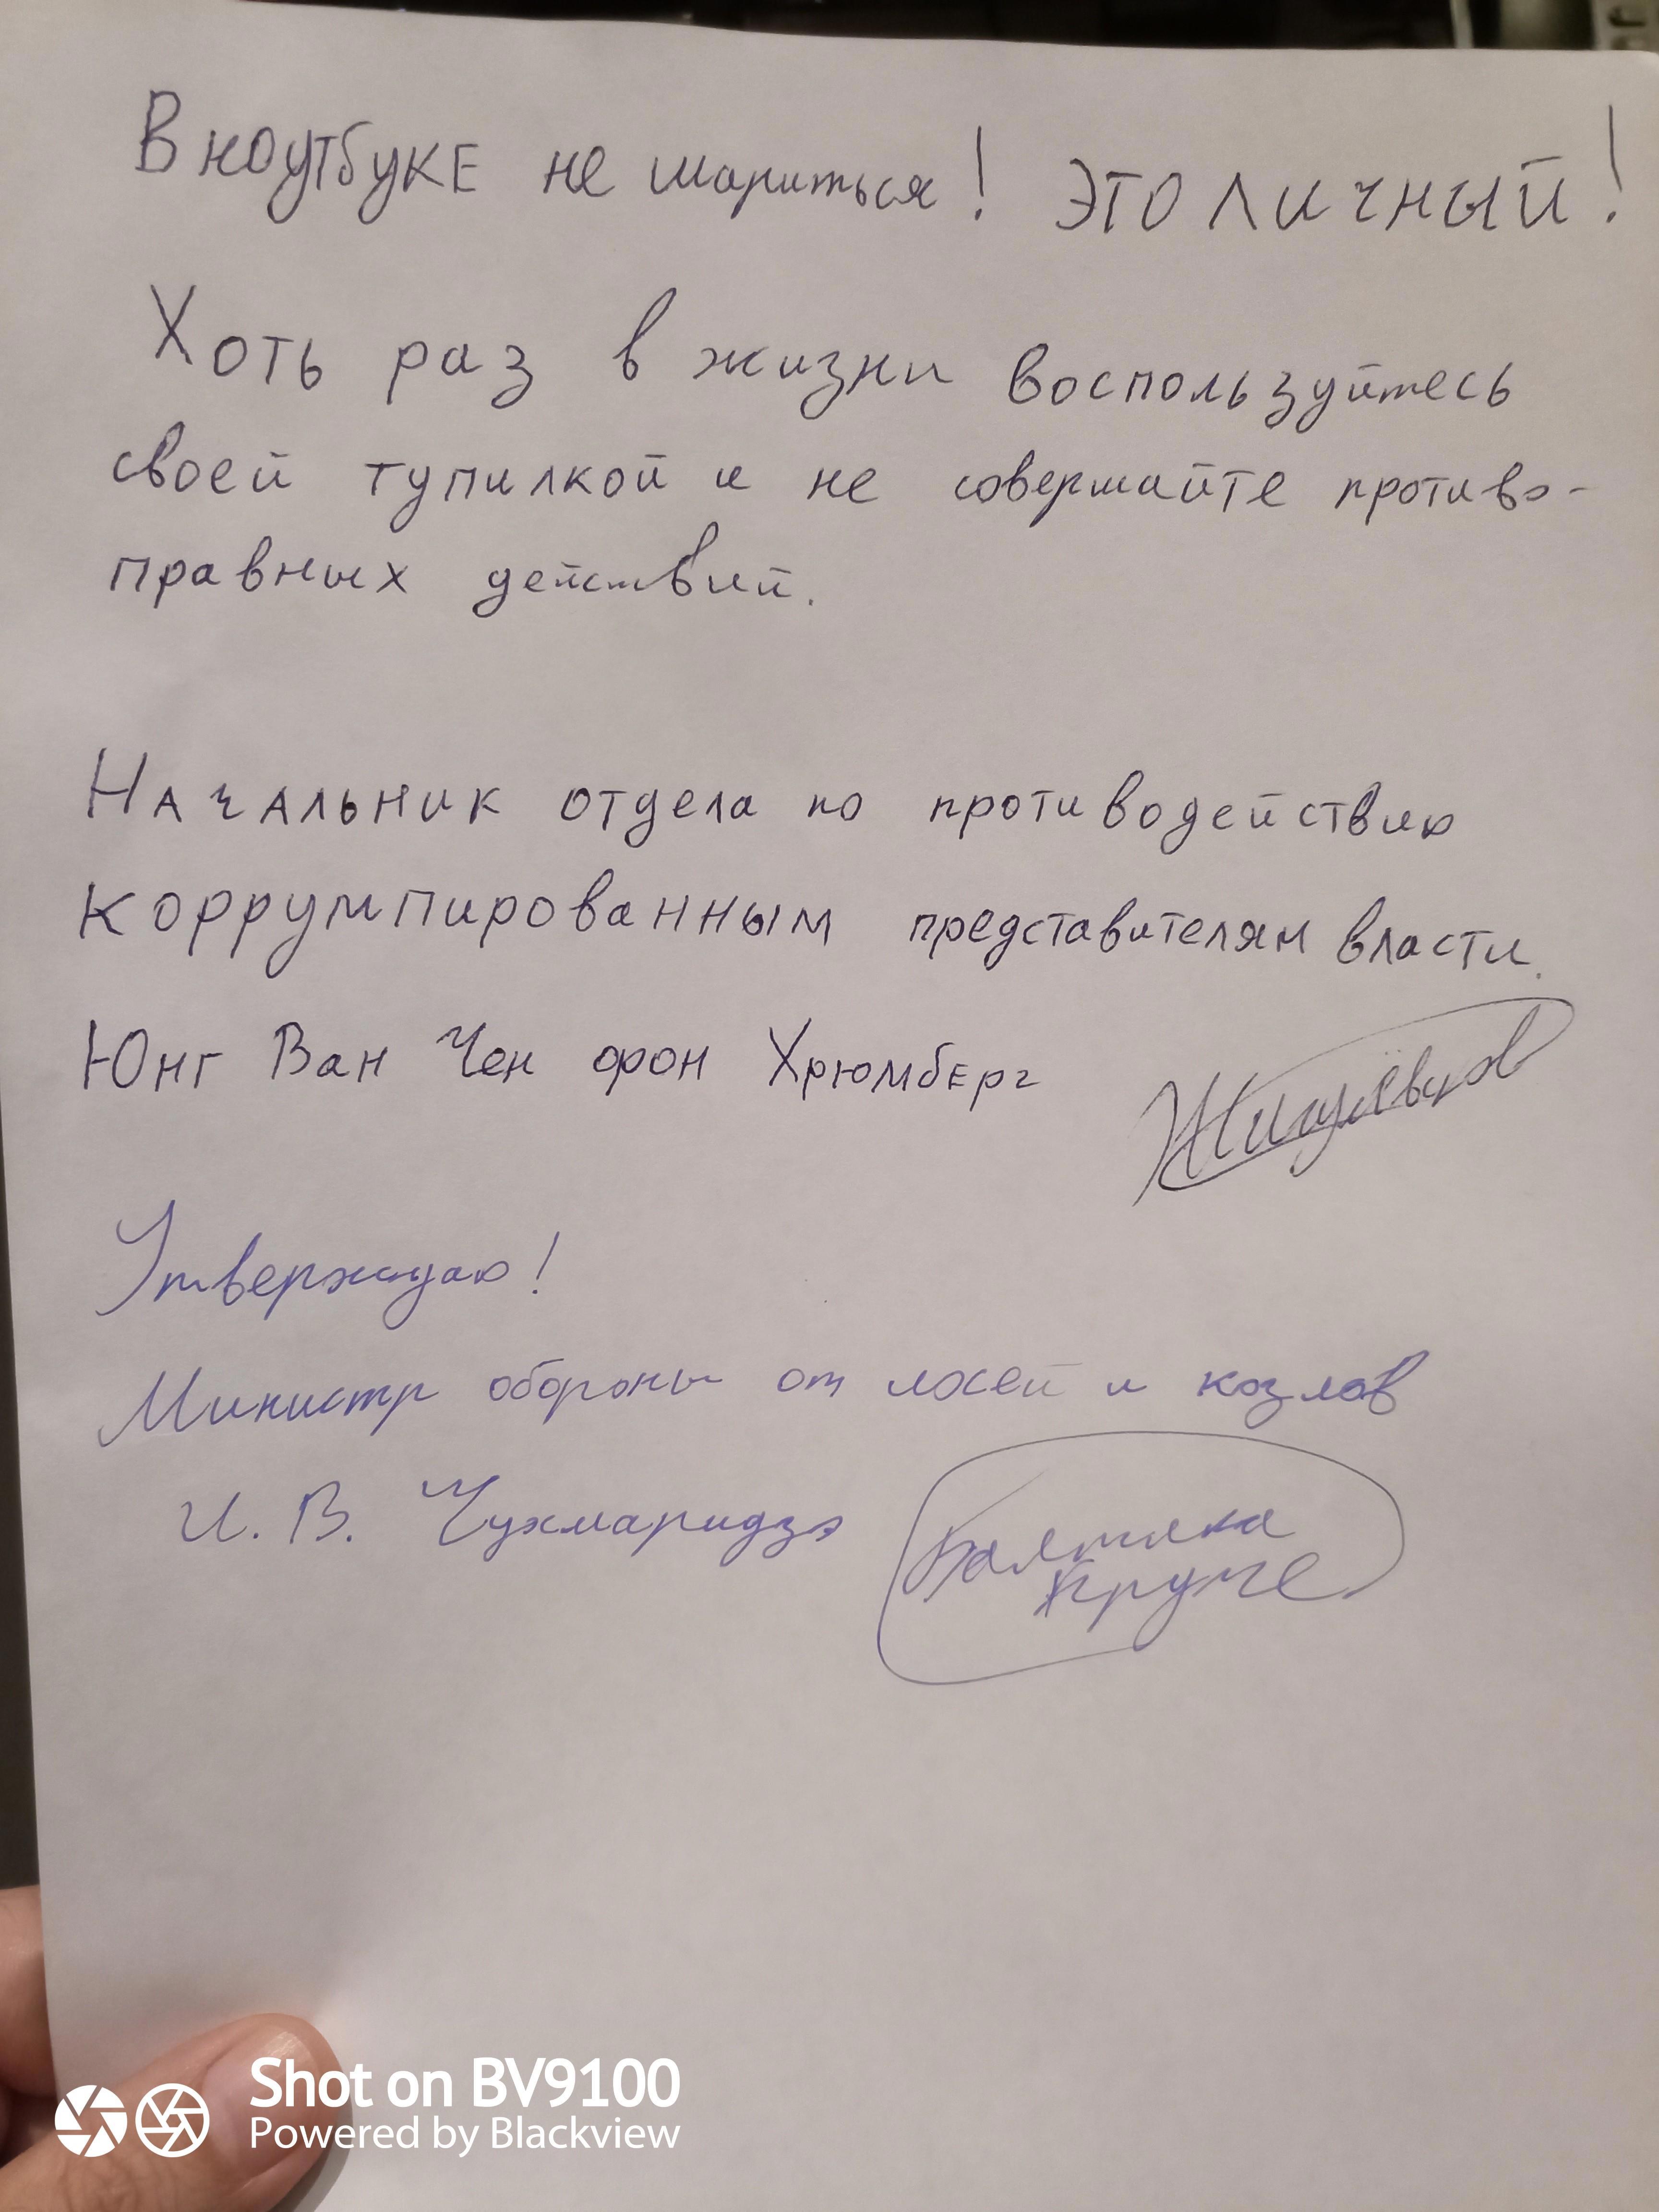 В ноутбуке не шариться! Это личный!
Хоть раз в жизни воспользуйтесь
своей тупилкой и не совершайте противо-
правных действий.
Начальник отдела по противодействию
коррумпированным представителям власти.
Юнг Ван Чен фон Хрюмберг
Утверждаю!
Министр обороны от лосей и козлов
И. В. Чухмаридзэ
Балтика
круче
Shot on BV9100
Powered by Blackview